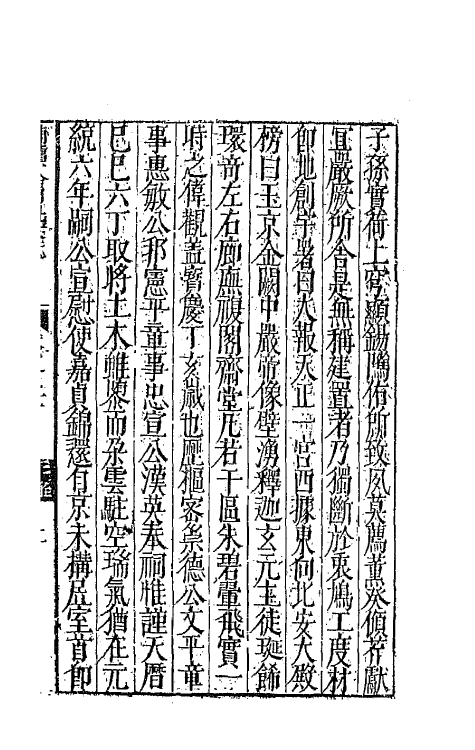 子孫實荷上穹顯錫陰佑所致夙莫薦薰烝傾葵獻
宜嚴厥所舍是無稱建置者乃獨斷於衷鳩工度材
卽地創宇署曰大報天正一宮西據東向北安大殿
榜曰玉京金闕中嚴帝像壁湧釋迦玄元玉徒璇飾
環奇左右廊廡觀閣齋堂凡若干區朱碧翬飛實一
時之偉觀蓋寶慶丁亥歲也歷樞密忠德公文平章
事惠敏公邦憲平章事忠宣公漢英奉祠惟謹天曆
己巳六丁取將土木雖燼而朶雲駐空瑞氣猶在元
統六年嗣公宣慰使嘉貞錦還自京未構居室首仰